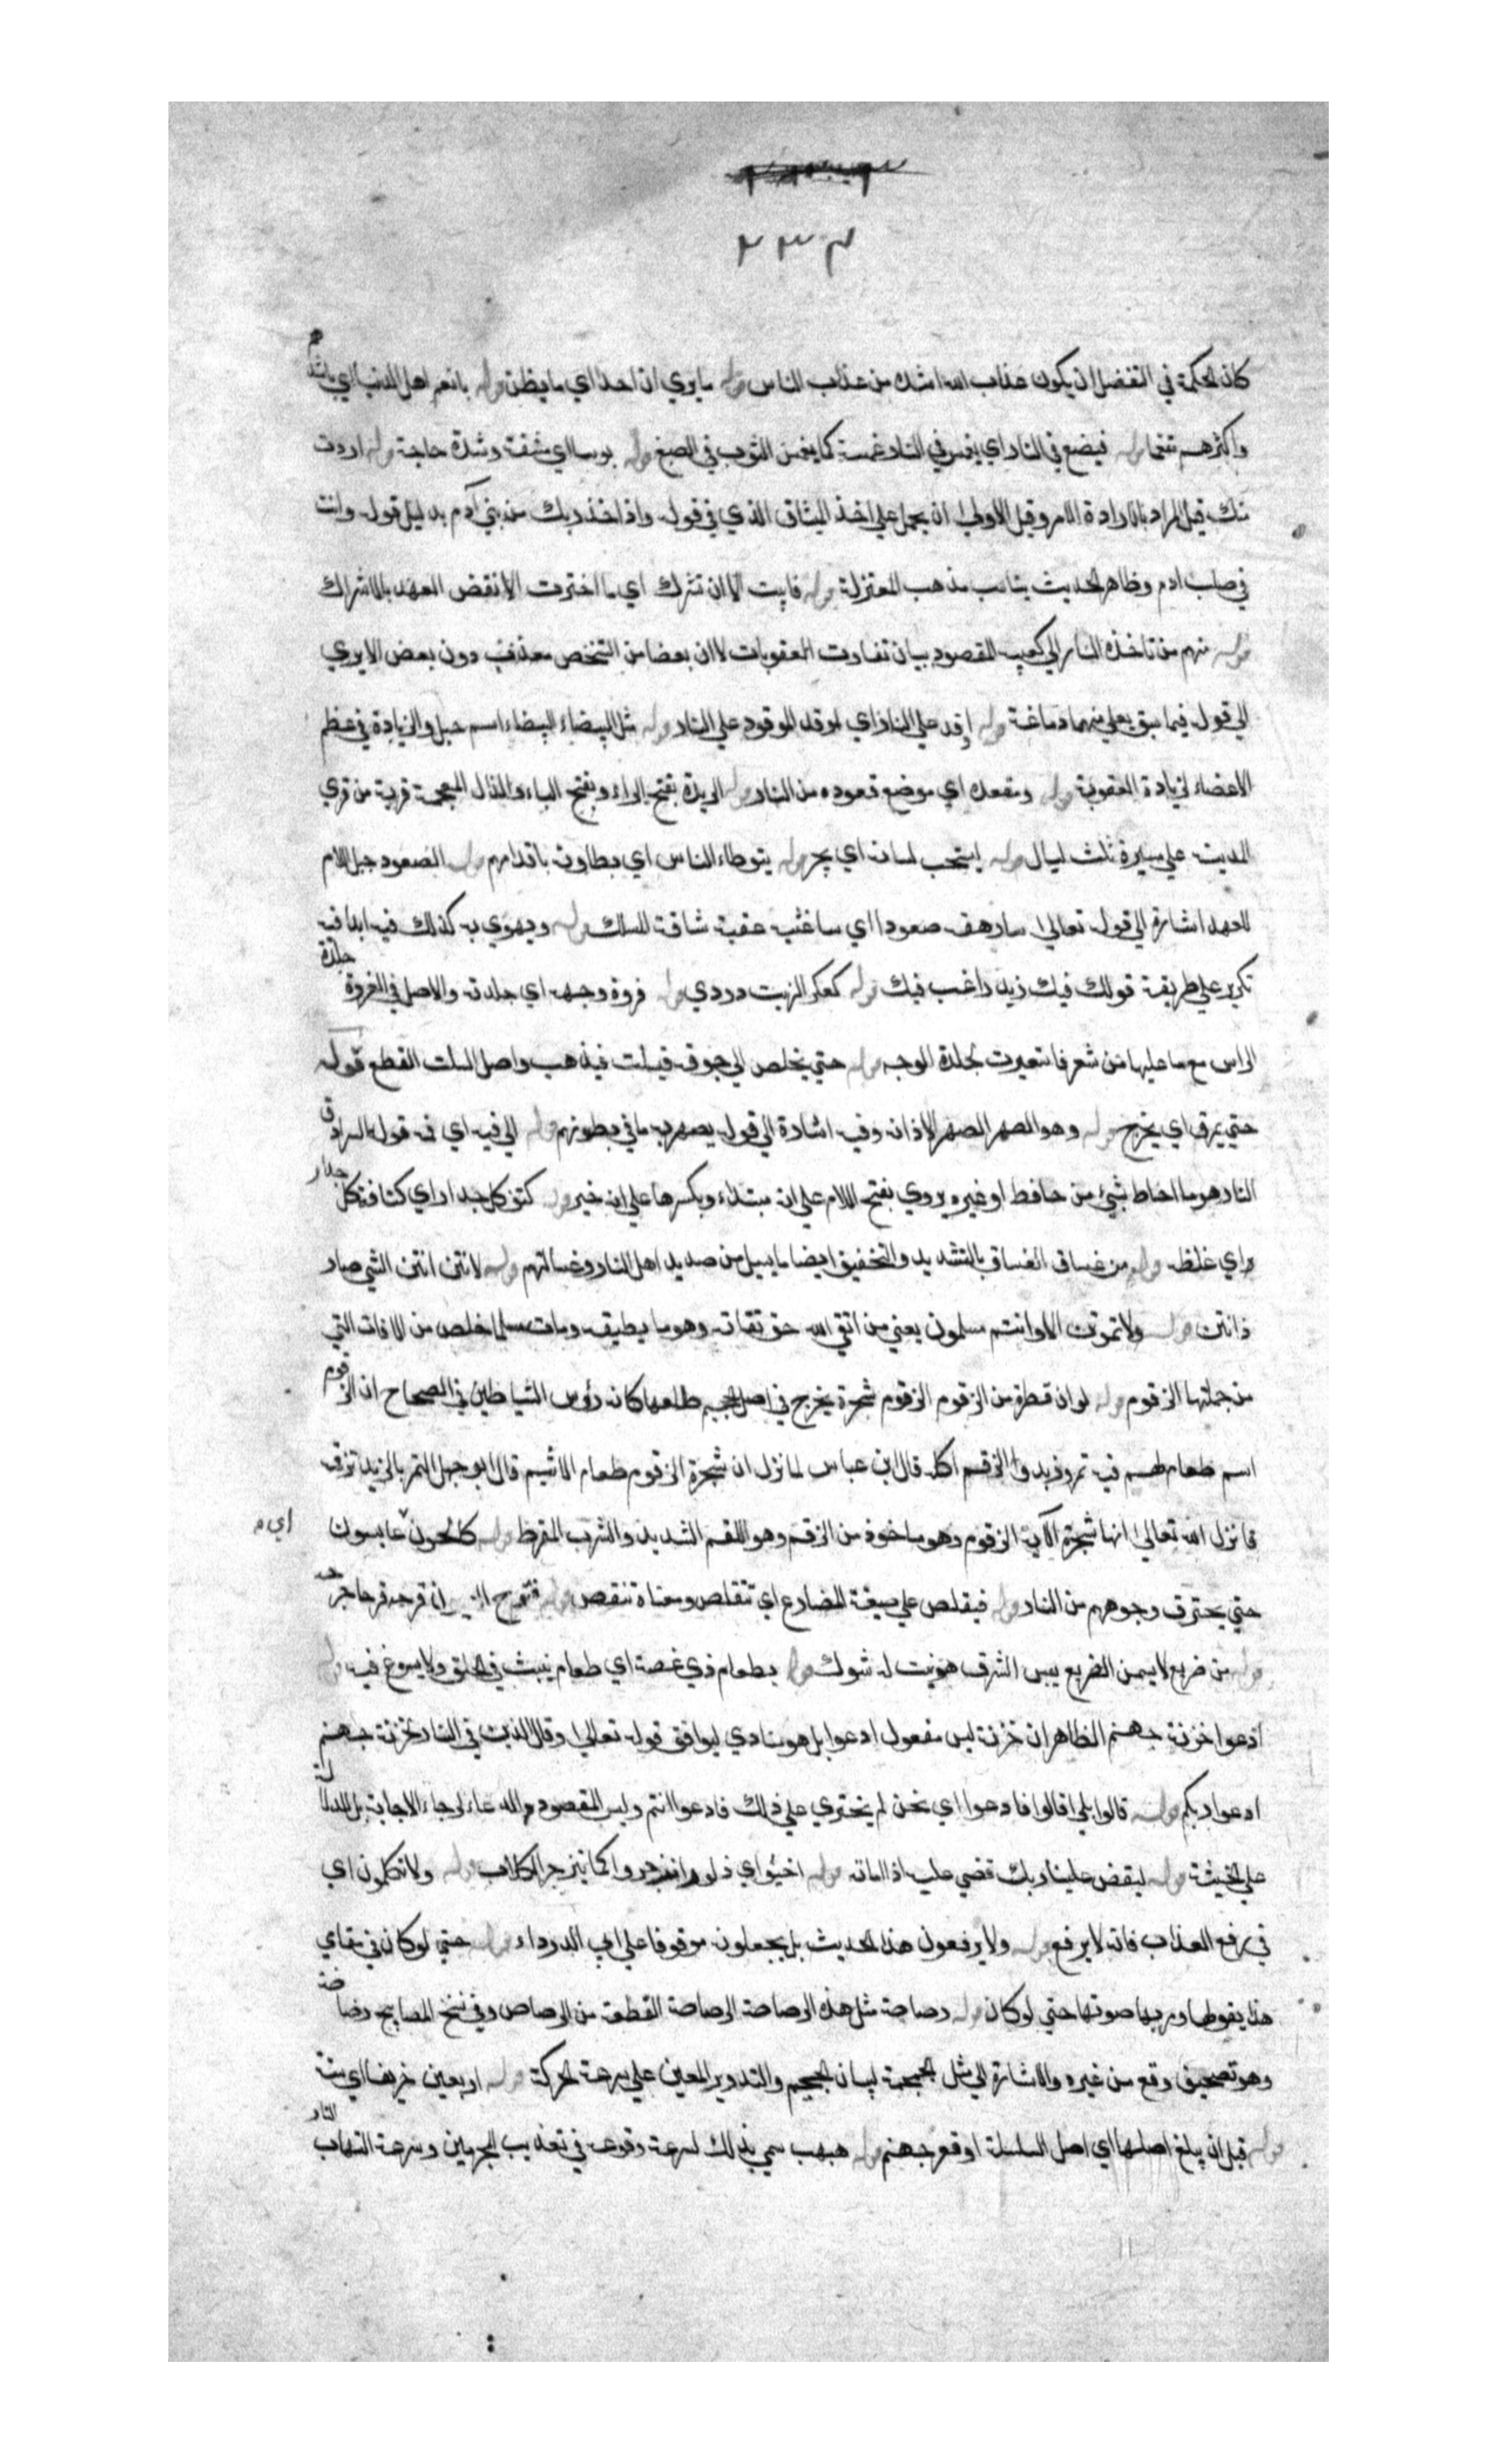 ٢٣٣
كان الحكمة في التفضل ان يكون عذاب الله اشد من عذاب الناس قوله ما يري ان احدا اي ما يظن قوله بانعم اهل الدنيا اي باشدهم
واكثرهم تنعما قوله فيضع في النار اي يغمس في النار غمسة كما يغمس الثوب في الصبغ قوله بوسا اي مشقة وشدة حاجة قوله اردت
منك قيل المراد بالارادة الامر وقيل الاولي ان يحمل علي اخذ الميثاق الذي في قوله واذ اخذ ربك من بني آدم بدليل قوله وانت
في صلب ادم وظاهر الحديث يناسب مذهب المعتزلة قوله فابيت الا ان تشرك اي ما اخترت الا نقض العهد بالاشراك
قوله منهم من تاخذه النار الي كعبيه المقصود بيان تفاوت العقوبات لا ان بعضا من الشخص معذب دون بعض الا يري
الي قوله فيما سبق يغلي منهما دماغه قوله اوقد علي النار اي اوقد الوقود علي النار قوله مثل البيضاء البيضاء اسم جبل والزيادة في عظم
الاعضاء لزيادة العقوبة قوله ومقعده اي موضع قعوده من النار قوله الربذة بفتح الراء وبفتح الباء والذال المعجمة قرية من قري
المدينة علي مسيرة ثلث ليال قوله ليسحب لسانه اي يجر قوله يتوطاء الناس اي يطاونه باقدامهم قوله الصعود جبل اللام
للعهد اشارة الي قوله تعالي سارهقه صعودا اي ساغشيه عقبة شاقة المسلك قوله ويهوي به كذلك فيه ابدا فيه
تكرير علي طريقة قولك فيك زيد راغب فيك قوله كعكر الزيت دردي قوله فروة وجهه اي جلدته والاصل في الفروة جلدة
الراس مع ما عليها من شعر فاستعيرت لجلدة الوجه قوله حتي يخلص الي جوفه فيسلت فيذهب واصل السلت القطع قوله
حتي يمرق اي يخرج قوله وهو الصهر الصهر الاذابة وفيه اشارة الي قوله يصهر به ما في بطونهم قوله الي فيه اي فمه قوله السرادق
النار هو ما احاط بشيء من حافط او غيره يروي بفتح اللام علي انه مبتداء وبكسرها علي انه خبر قوله كثف كل جدار اي كثافة كل جدار
اي غلظه قوله من غساق الغساق بالتشديد والتخفيف ايضا ما يسيل من صديد اهل النار وغسالتهم قوله لانتن انتن الشي صار
ذا نتن قوله ولا تموتن الا وانتم مسلمون يعني من اتقي الله حق تقاته وهو ما يطيقه ومات مسلما خلص من الافات التي
من جملتها الزقوم قوله لو ان قطرة من الزقوم الزقوم شجرة يخرج في اصل الجحيم طلعها كانه رؤس الشياطين في الصحاح ان الزقوم
اسم طعام لهم فيه تمر وزبد والزقم اكله قال ابن عباس لما نزل ان شجرة الزقوم طعام الاثيم قال ابو جهل التمر بالزبد نتزقمه
فانزل الله تعالي انها شجرة الآية الزقوم وهو ماخوذ من الزقم وهو اللقم الشديد والشرب المفرط قوله كالحون عابسون
اي م
حتي يحترق وجوههم من النار قوله فيقلص علي صيغة المضارع اي تتقلص ومعناه تنقص قوله فتقرح قرحه قرحا جرحه
قوله من ضريع لا يسمن الضريع يبس الشرق هو نبت له شوك قوله بطعام ذي غصة اي طعام ينشب في الحلق ولا يسوغ فيه قوله
ادعوا خزنة جهنم الظاهر ان خزنة ليس مفعول ادعوا بل هو منادي ليوافق قوله تعالي وقال الذين في النار لخزنة جهنم
ادعوا ربكم قوله قالوا بلي قالوا فادعوا اي نحن لم نجتري علي ذلك فادعوا انتم وليس المقصود الدعاء لرجاء الاجابة بل للدلالة
علي الخيبة قوله ليقض علينا ربك قضي عليه اذا اماته قوله اخسئوا اي ذلوا وانزجروا كما ينزجر الكلاب قوله ولا تكلمون اي
في رفع العذاب فانه لا يرفع قوله ولا يرفعون هذا الحديث بل يجعلونه موقوفا علي ابي الدرداء قوله حتي لو كان في مقامي
هذا يقولها ويريد بها صوتها حتي لو كان قوله رصاصة مثل هذه الرصاصة الرصاصة القطعة من الرصاص وفي نسخ المصابيح رضاضة
وهو تصحيف وقع من غيره والاشارة الي مثل الجمجمة لبيان الحجم والتدوير المعين علي سرعة الحركة قوله اربعين خريفا اي سنة
قوله قبل ان يبلغ اصلها اي اصل السلسلة او قعر جهنم قوله هبهب سمي بذلك لسرعة وقوعه في تعذيب المجرمين وسرعة التهاب النار